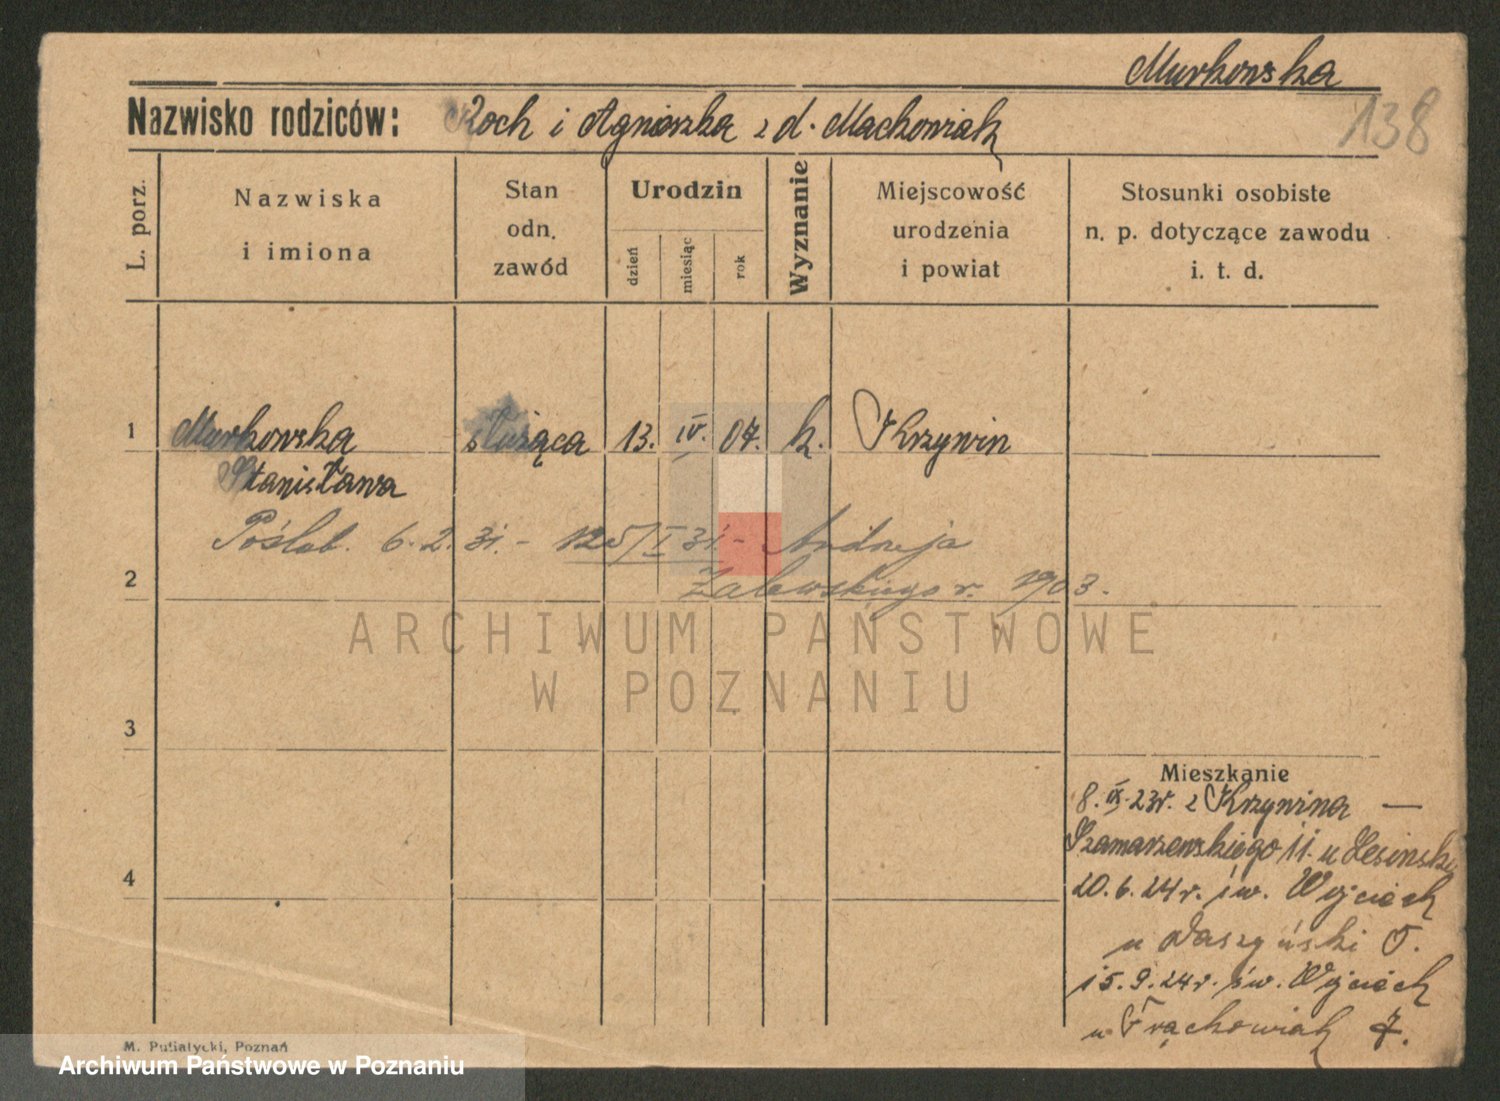 Murkowska
138
Nazwisko rodziców: Roch i Agnieszka z d. Machowiak
L. porz.
Nazwiska i imiona
Stan odn. zawód
Urodzin
dzień
miesiąc
rok
Wyznanie
Miejscowość urodzenia i powiat
Stosunki osobiste n. p. dotyczące zawodu i. t. d.
1 Murkowska służąca 13. IV. 07. k. Krzywin
Stanisława
Poślub. 6.2.31. - 125/I 31 - Andrzeja
2 Zalewskiego r. 1903.
ARCHIWUM PAŃSTWOWE
W POZNANIU
3
Mieszkanie
8. IX. 23r. z Krzywina —
Szamarzewskiego 11. u
4
20.6.24r. św. Wojciech
u Waszyński 5.
15.9.24r. św. Wojciech
u Frąckowiak 7.
M. Putiatycki, Poznań
Archiwum Państwowe w Poznaniu